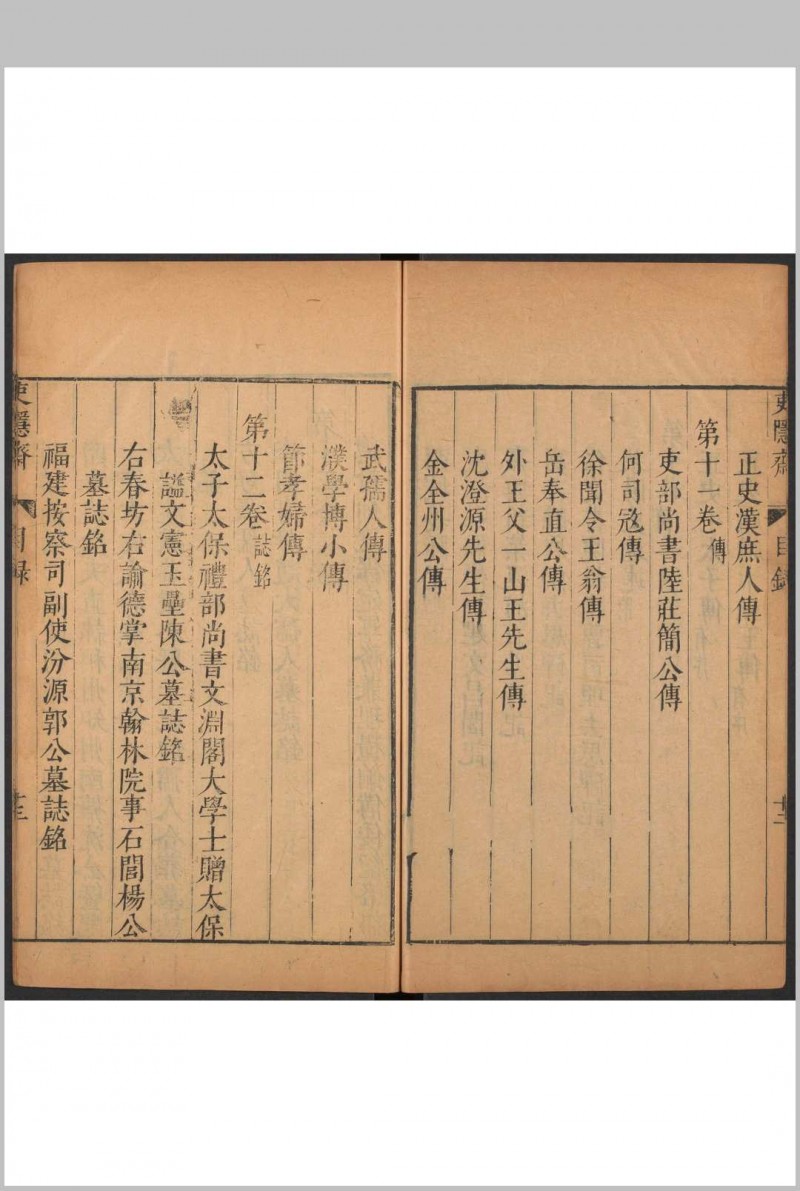 吏隱齋
目錄
十二
正史漢庶人傳
第十一卷 傳
吏部尚書陸莊簡公傳
何司寇傳
徐聞令王翁傳
岳奉直公傳
外王父一山王先生傳
沈澄源先生傳
金全州公傳
武孺人傳
濮學博小傳
節孝婦傳
第十二卷 誌銘
太子太保禮部尚書文淵閣大學士贈太保
謚文憲玉壘陳公墓誌銘
右春坊右諭德掌南京翰林院事石閭楊公
墓誌銘
福建按察司副使汾源郭公墓誌銘
吏隱齋
目錄